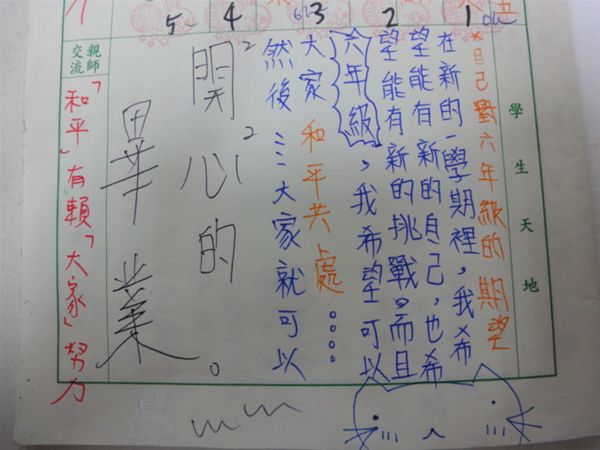 5 4 3 2 1
學生天地
*自己對六年級的期望
在新的一學期裡，我希
望能有新的自己，也希
望能有新的挑戰。而且
六年級，我希望可以
大家和平共處……
然後⋯⋯大家就可以
開心的
畢業。
親師交流
「和平」有賴「大家」努力